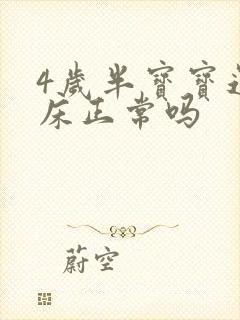 4歲半寶寶
床正常吗
蔚空